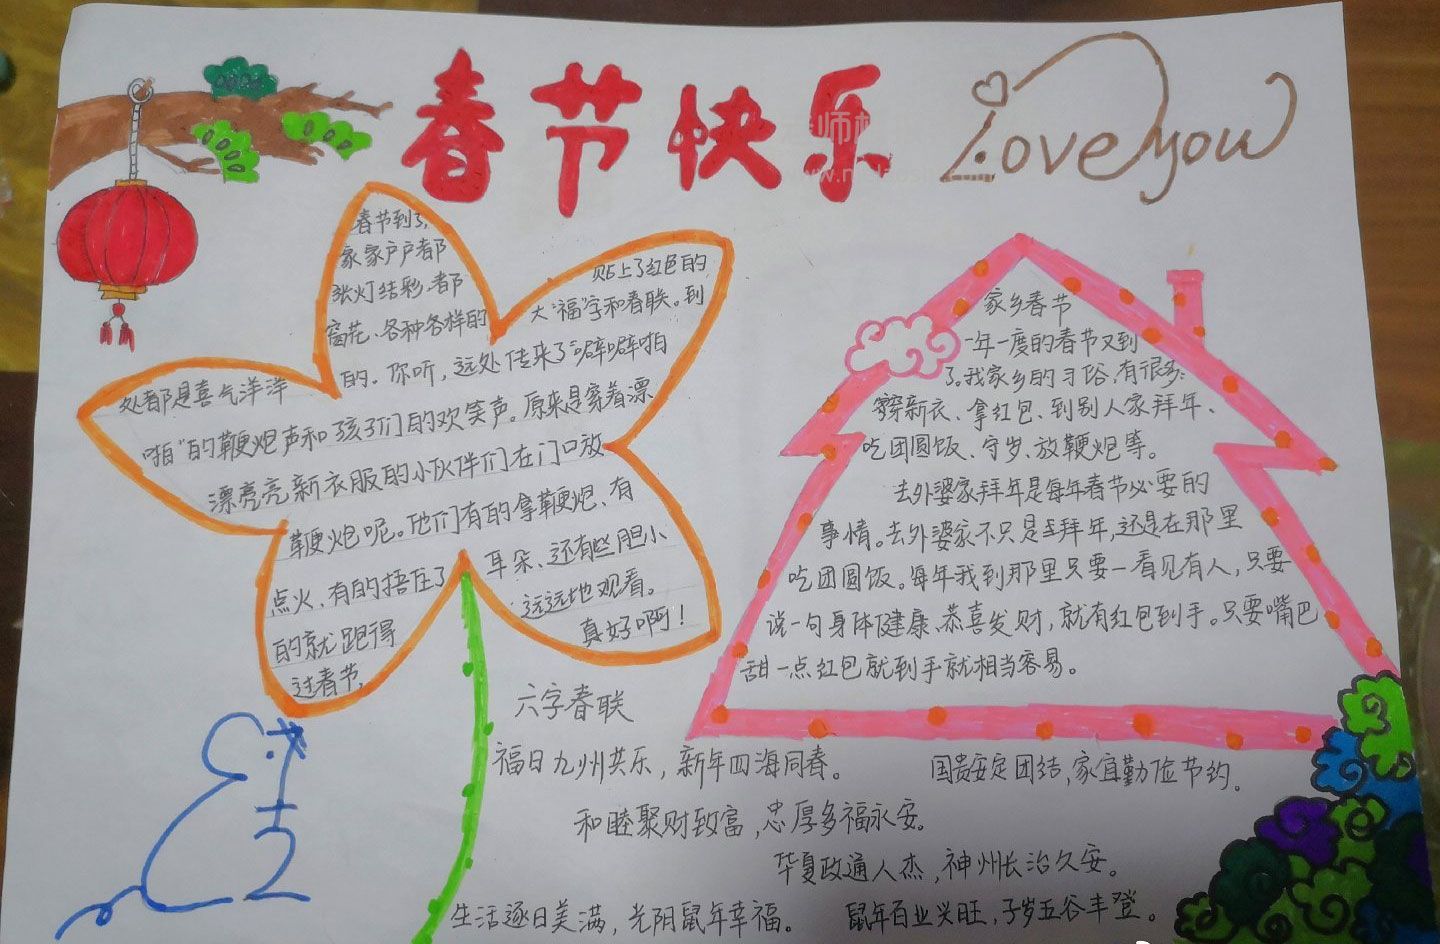 春节快乐
Love you
春节到了,
家家户户都
张灯结彩、都
贴上了红色的
大“福”字和春联。到
窗花、各种各样的
处都是喜气洋洋
的。你听，远处传来了“噼噼啪
啪”的鞭炮声和孩子们的欢笑声。原来是穿着漂
漂亮亮新衣服的小伙伴们在门口放
鞭炮呢。他们有的拿鞭炮、有
点火、有的捂住了
耳朵、还有些胆小
的就跑得
远远地观看。
过春节,
真好啊！
家乡春节
一年一度的春节又到
了。我家乡的习俗,有很多:
穿新衣、拿红包、到别人家拜年、
吃团圆饭、守岁、放鞭炮等。
去外婆家拜年是每年春节必要的
事情。去外婆家不只是拜年,还是在那里
吃团圆饭。每年我到那里只要一看见有人,只要
说一句身体健康、恭喜发财,就有红包到手。只要嘴巴
甜一点红包就到手就相当容易。
六字春联
福日九州共乐，新年四海同春。
国贵安定团结,家宜勤俭节约。
和睦聚财致富,忠厚多福永安。
华夏政通人杰,神州长治久安。
生活逐日美满，光阴鼠年幸福。
鼠年百业兴旺,子岁五谷丰登。